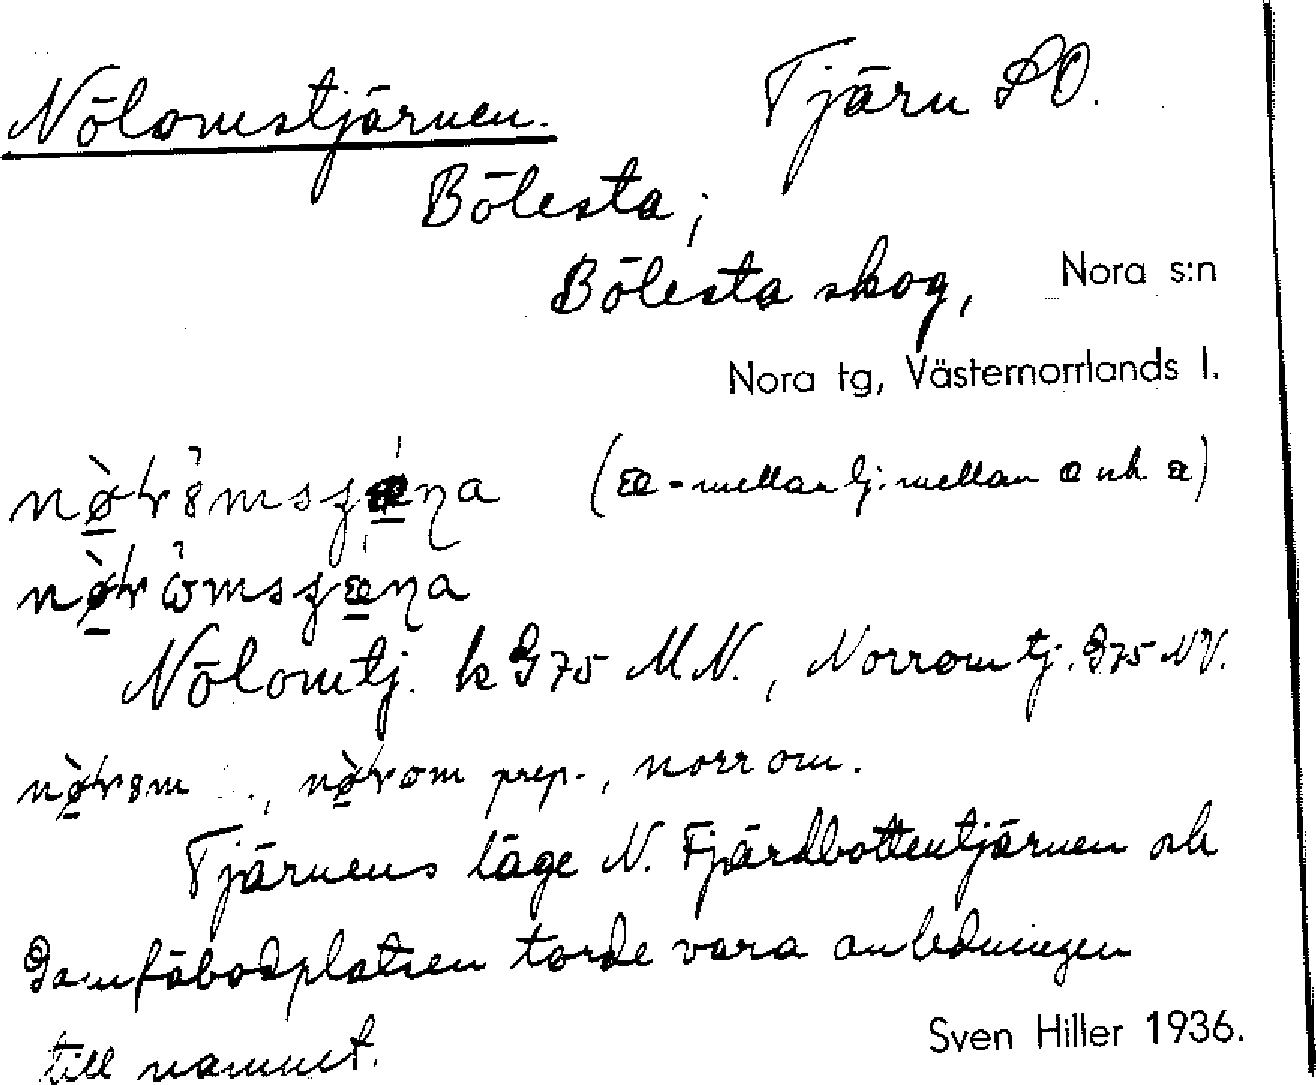 Nölomstjärnen. Tjärn SO.
Bölesta;
Bölesta skog, Nora s:n
Nora tg, Västernorrlands l.
(æ-mellanlj. mellan a och æ)
Nölomtj. k G75 MN., Norromtj. G75 NV.
prep., norrom.
Tjärnens läge N. Fjärdbottentjärnen och
Gamfäbodplatsen torde vara anledningen
till namnet.
Sven Hiller 1936.